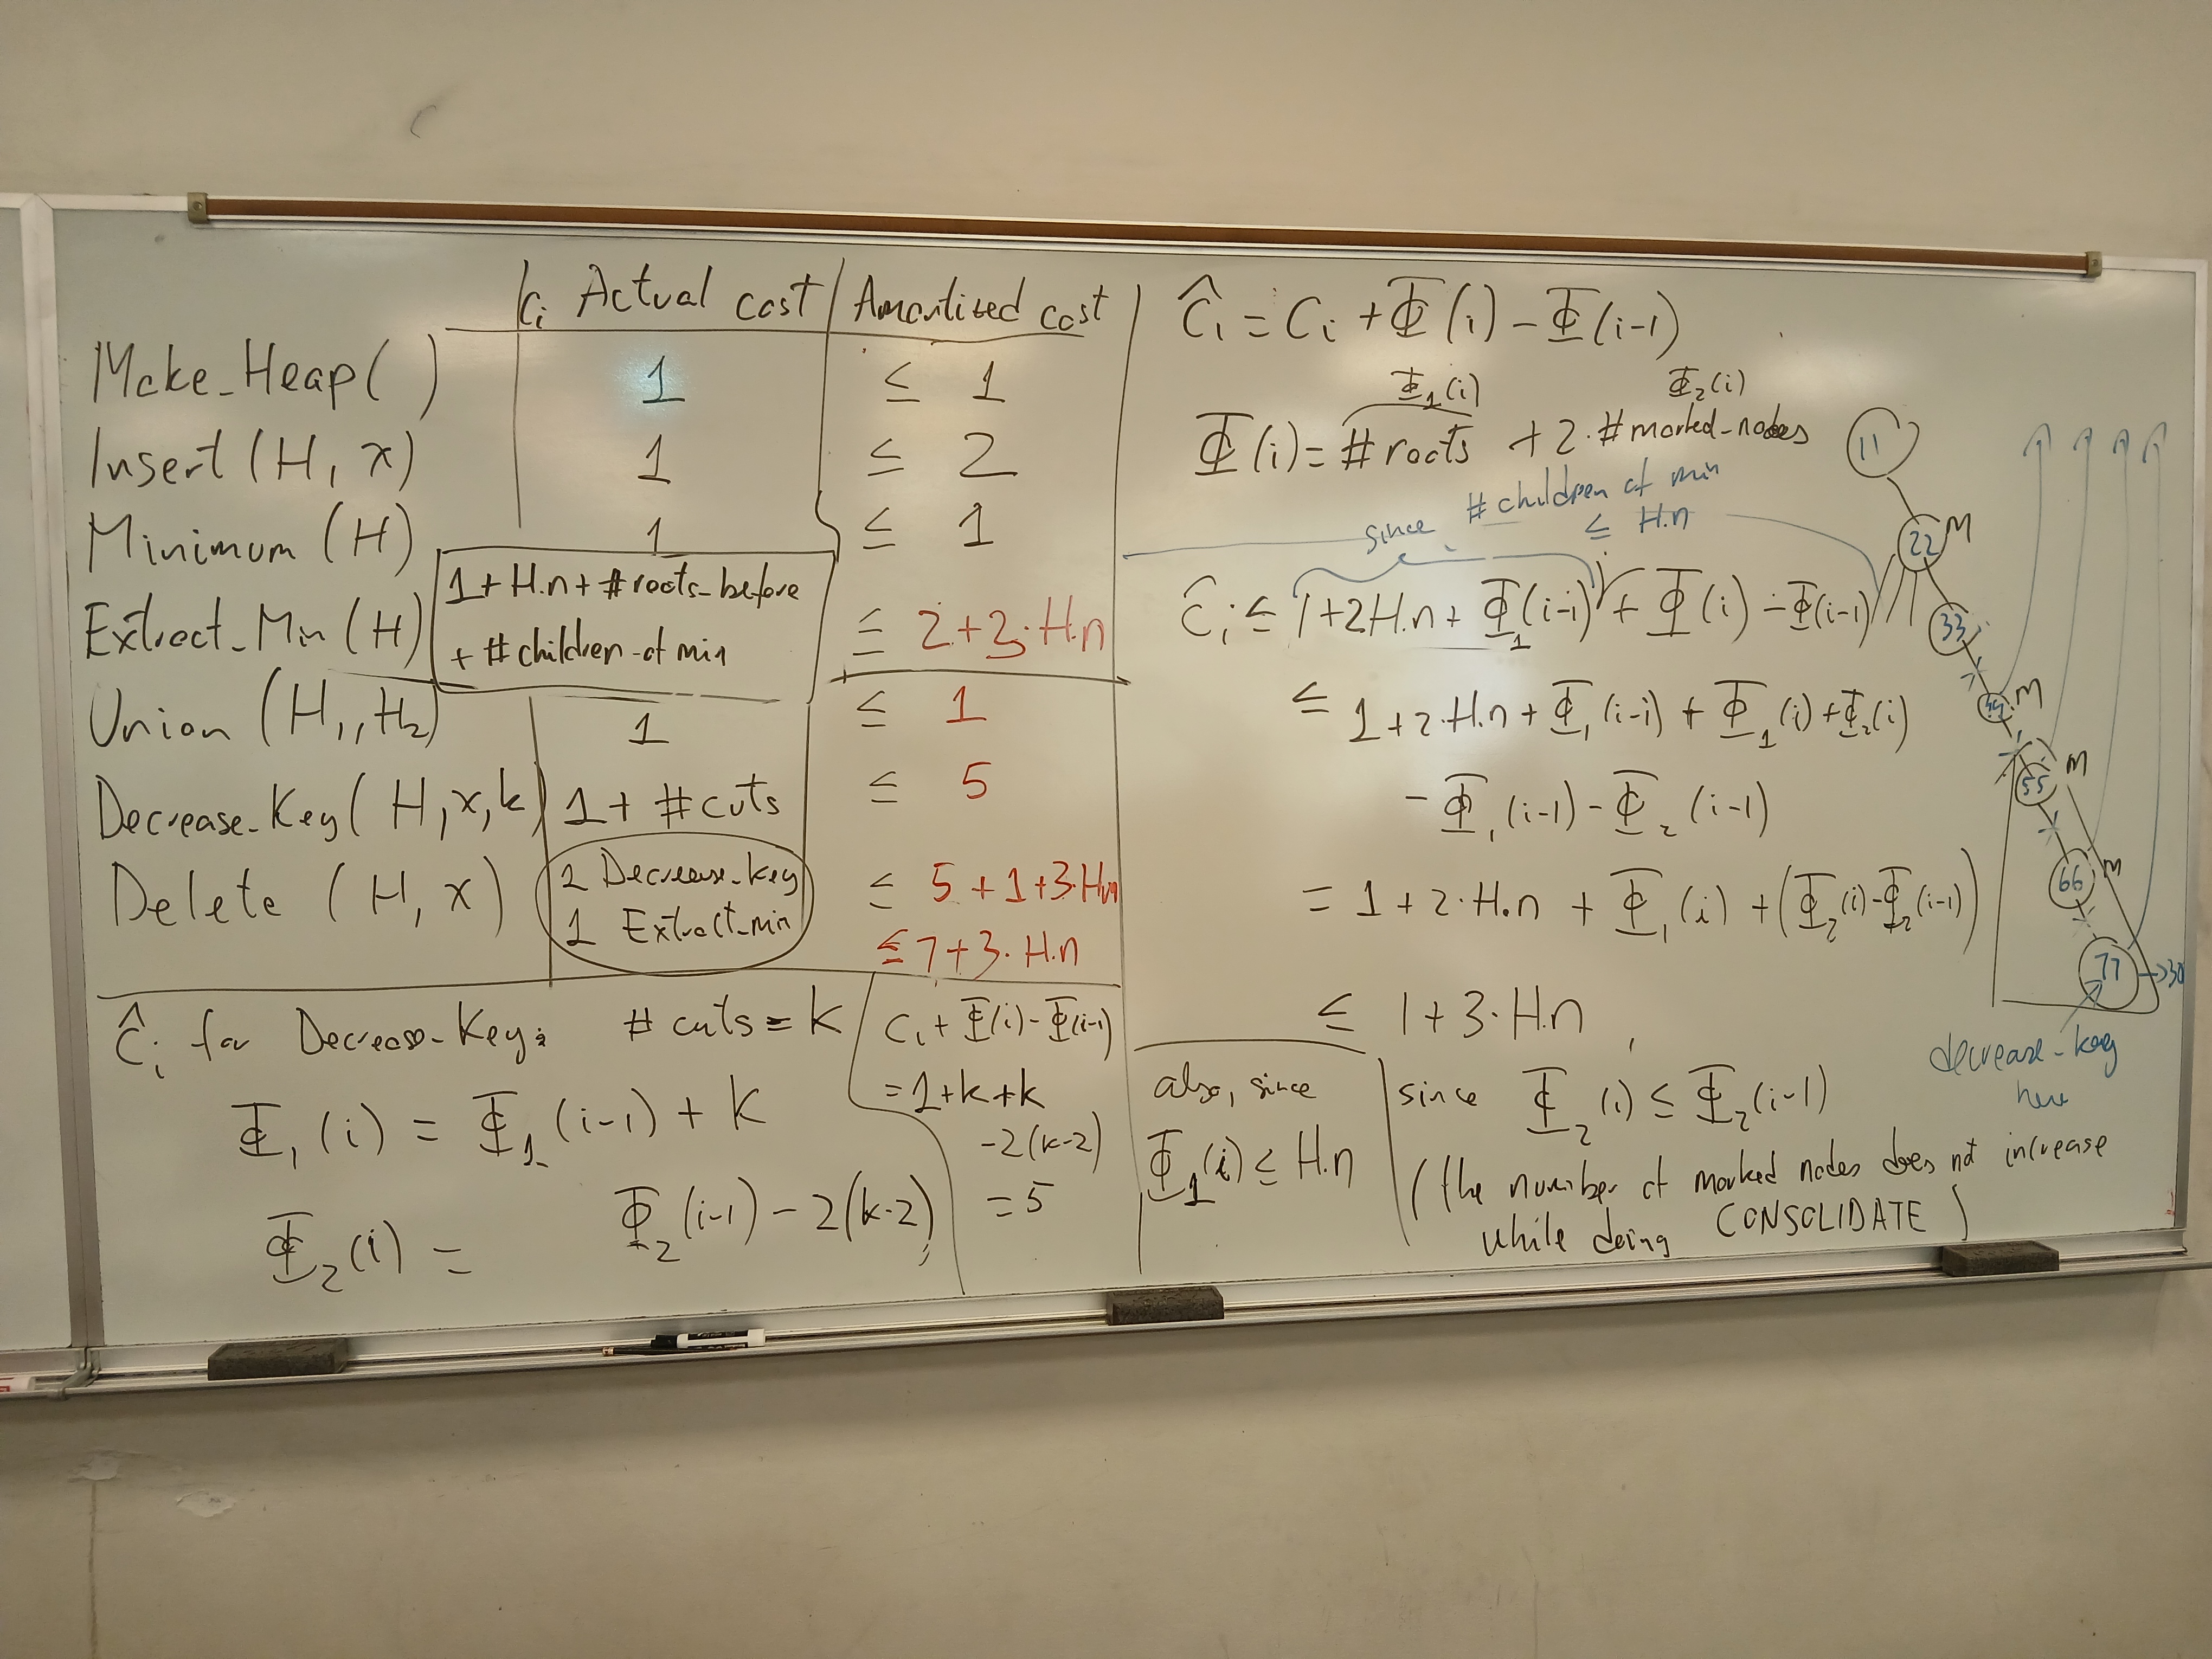 Cᵢ Actual cost | Amortized cost
Make_Heap( ) 1 ≤ 1
Insert (H, x) 1 ≤ 2
Minimum (H) 1 ≤ 1
Extract_Min (H) 1 + H.n + #roots_before + #children_of min ≤ 2+3·H.n
Union (H₁, H₂) 1 ≤ 1
Decrease_Key( H, x, k) 1 + #cuts ≤ 5
Delete (H, x) 1 Decrease_key ≤ 5+1+3·H.n
1 Extract_min ≤ 7+3·H.n
Ĉᵢ for Decrease_Key: # cuts = k
Φ₁(i) = Φ₁(i-1) + k
Φ₂(i) = Φ₂(i-1) - 2(k-2)
Cᵢ + Φ(i) - Φ(i-1)
= 1+k+k
-2(k-2)
= 5
Ĉᵢ = Cᵢ + Φ(i) - Φ(i-1)
Φ₁(i) Φ₂(i)
Φ(i) = #roots + 2·#marked_nodes
since #children of min
≤ H.n
Ĉᵢ ≤ 1+2H.n + Φ₁(i-1) + Φ(i) - Φ(i-1)
≤ 1+2·H.n + Φ₁(i-1) + Φ₁(i) + Φ₂(i)
- Φ₁(i-1) - Φ₂(i-1)
= 1+2·H.n + Φ₁(i) + (Φ₂(i) - Φ₂(i-1))
≤ 1+3·H.n
also, since
Φ₁(i) ≤ H.n
since Φ₂(i) ≤ Φ₂(i-1)
(the number of marked nodes does not increase
while doing CONSOLIDATE)
11
22 M
33
44 M
55 M
66 M
77 →30
decrease-key
here